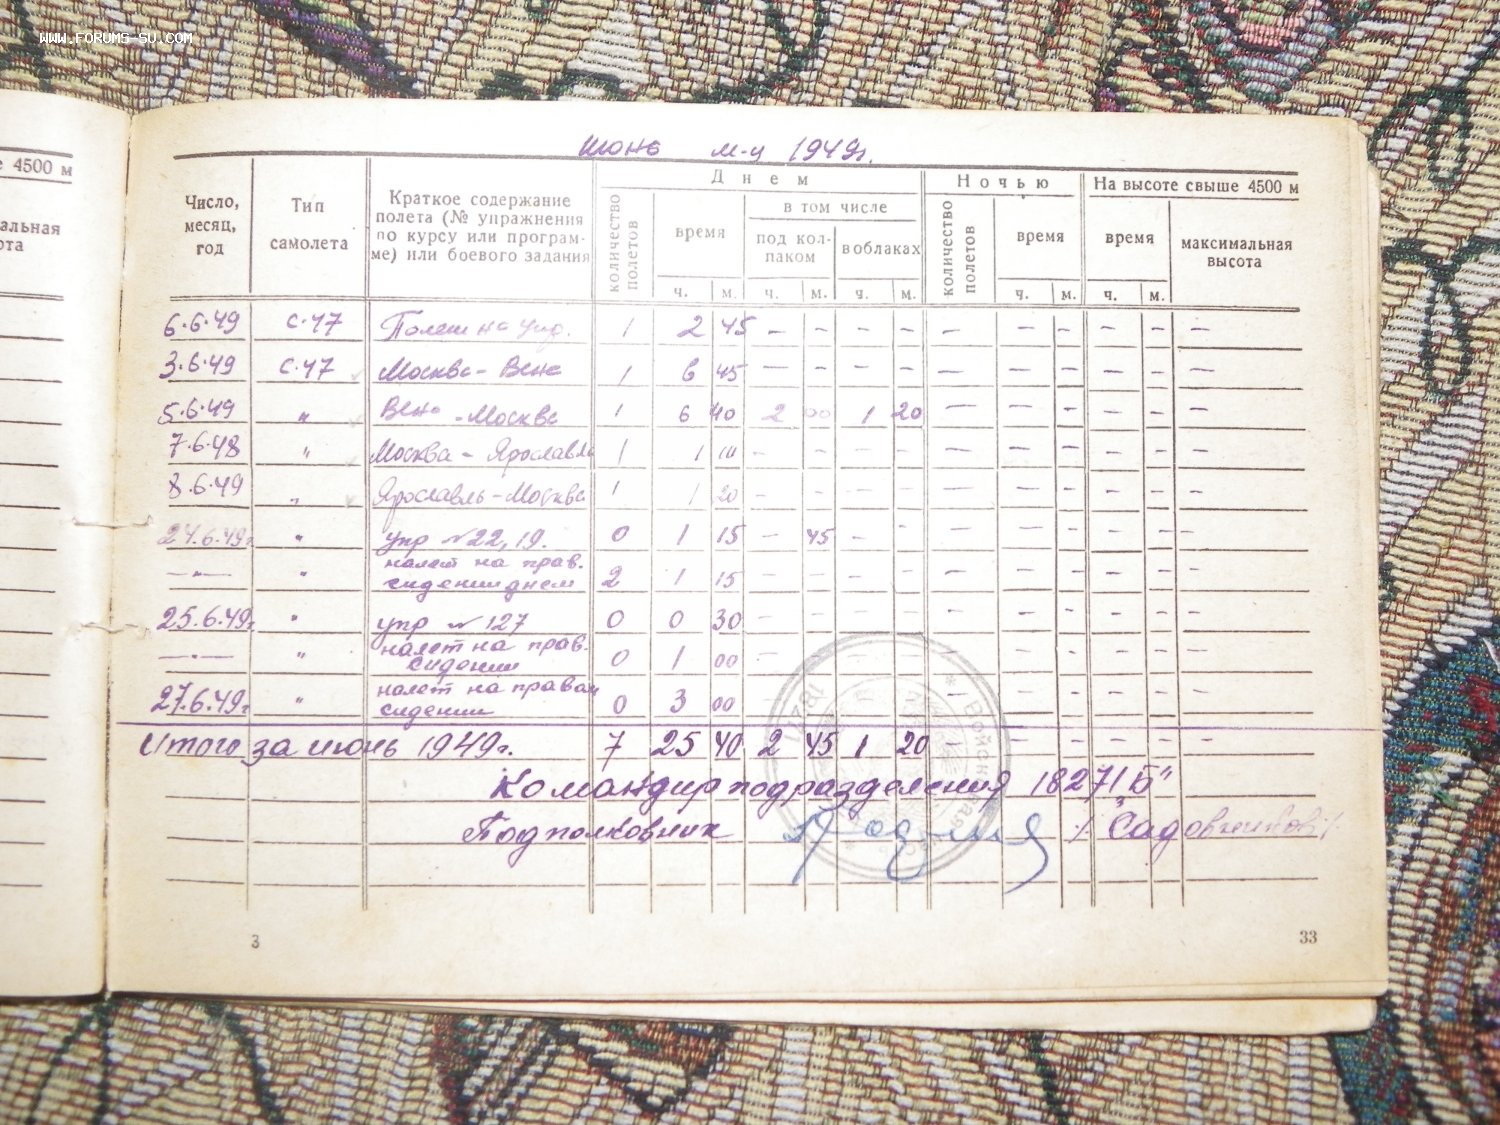 WWW.FORUMS-SU.COM
е 4500 м
альная
ота
июнь м-ц 1949г.
Число, месяц, год
Тип самолета
Краткое содержание полета (№ упражнения по курсу или програм-ме) или боевого задания
Днем
количество полетов
время
в том числе
под кол-паком
в облаках
Ночью
количество полетов
время
На высоте свыше 4500 м
время
максимальная высота
ч. м. ч. м. ч. м. ч. м. ч. м.
6.6.49 С-47 Полет на 1 2 45 – – – – – – – – – –
3.6.49 С-47 Москва - Вена 1 6 45 – – – – – – – – – –
5.6.49 " Вена - Москва 1 6 40 2 00 1 20 – – – – – –
7.6.48 " Москва - Ярославль 1 1 10 – – – – – – – – – –
8.6.49 " Ярославль - Москва 1 1 20 – – – – – – – – – –
24.6.49г. " упр №22, 19. 0 1 15 – 45 – – – – – – – –
—"— " налет на прав. сидении днем 2 1 15 – – – – – – – – – –
25.6.49г. " упр № 127 0 0 30 – – – – – – – – – –
—"— " налет на прав. сидении 0 1 00 – – – – – – – – – –
27.6.49г. " налет на правом сидении 0 3 00 – – – – – –
Итого за июнь 1949г. 7 25 40 2 45 1 20 – – – – – –
Командир подразделения 18271 "Б"
Подполковник /Садовников/
* Войсковая 18271
3
33